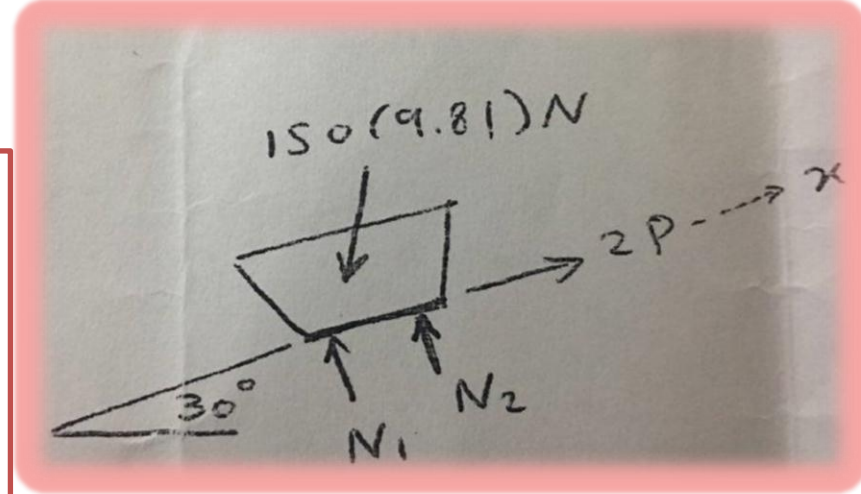 150(9.81)N
2P
x
30°
N2
N1